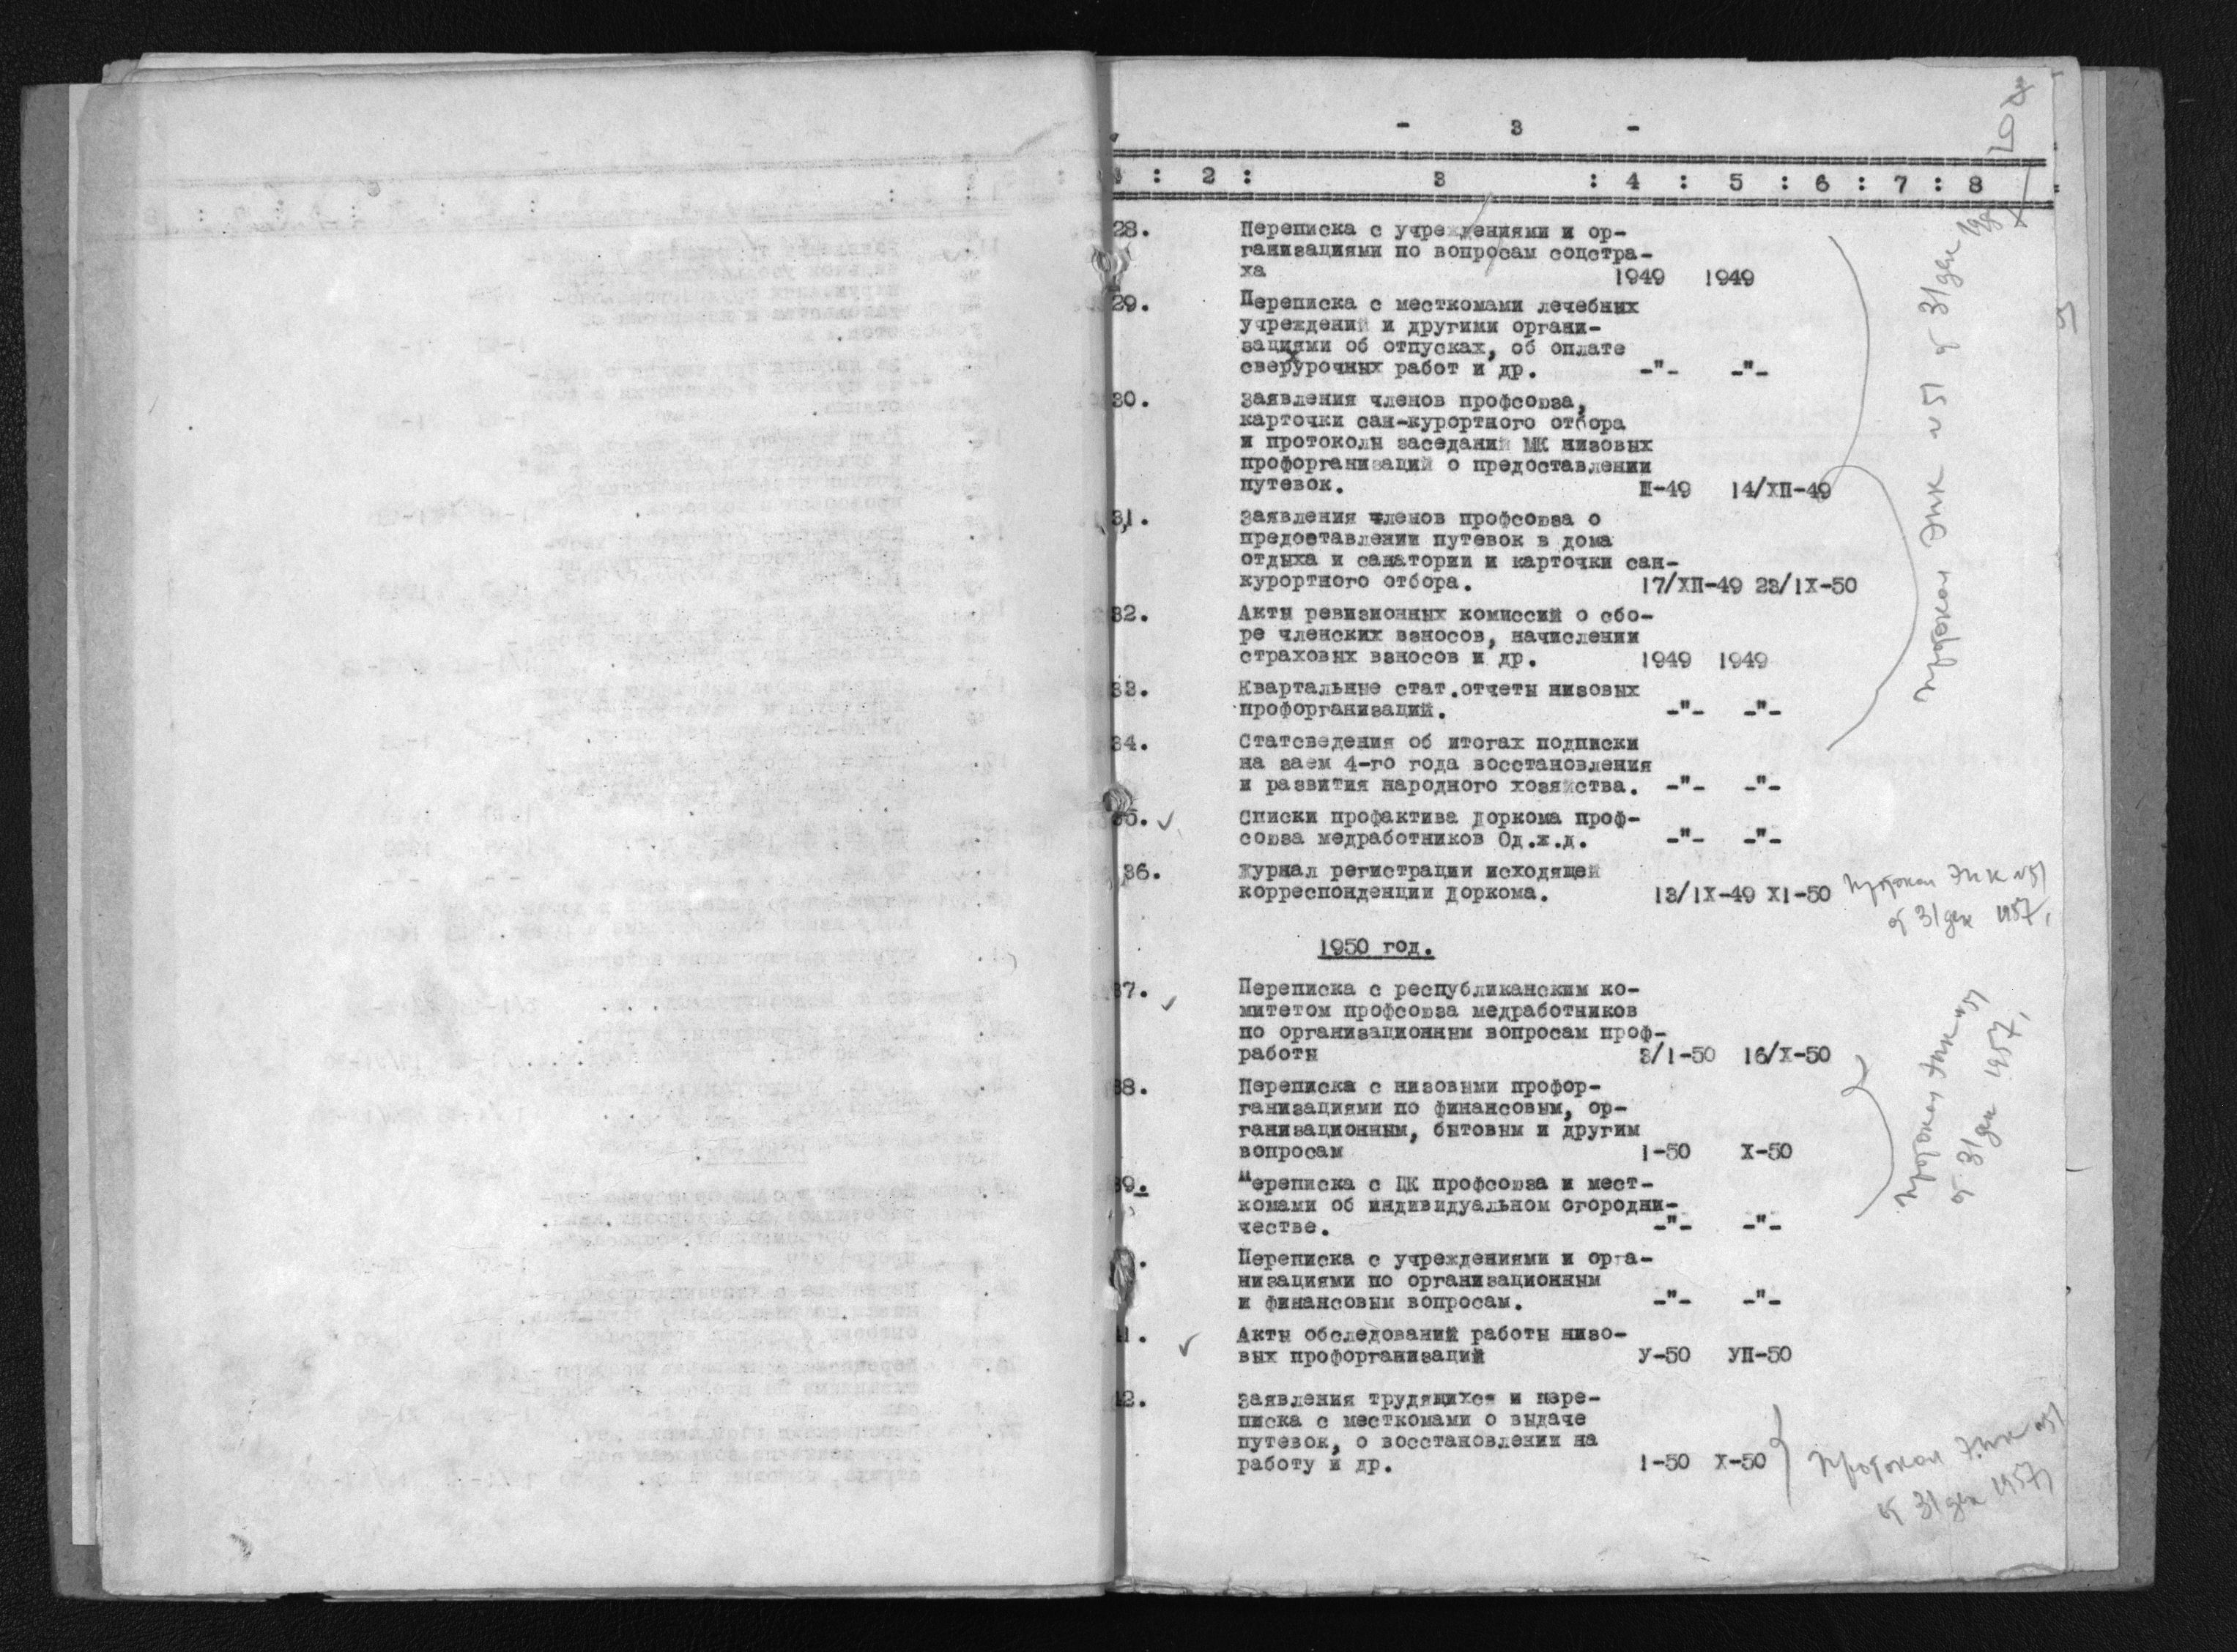 - 3 -
: 2 : 3 : 4 : 5 : 6 : 7 : 8
28. Переписка с учреждениями и ор-
ганизациями по вопросам соцстра-
ха 1949 1949
29. Переписка с месткомами лечебных
учреждений и другими органи-
зациями об отпусках, об оплате
сверхурочных работ и др. -"- -"-
30. Заявления членов профсоюза,
карточки сан-курортного отбора
и протоколы заседаний МК низовых
профорганизаций о предоставлении
путевок. Ш-49 14/ХП-49
31. Заявления членов профсоюза о
предоставлении путевок в дома
отдыха и санатории и карточки сан-
курортного отбора. 17/ХП-49 23/1Х-50
32. Акты ревизионных комиссий о сбо-
ре членских взносов, начислении
страховых взносов и др. 1949 1949
33. Квартальные стат.отчеты низовых
профорганизаций. -"- -"-
34. Статсведения об итогах подписки
на заем 4-го года восстановления
и развития народного хозяйства. -"- -"-
35. Списки профактива Доркома проф-
союза медработников Од.ж.д. -"- -"-
Протокол ЭПК №51 от 31 дек
36. Журнал регистрации исходящей
корреспонденции Доркома. 13/1Х-49 Х1-50
Протокол ЭПК №51
от 31 дек 1957,
1950 год.
37. Переписка с республиканским ко-
митетом профсоюза медработников
по организационным вопросам проф-
работы 3/1-50 16/Х-50
38. Переписка с низовыми профор-
ганизациями по финансовым, ор-
ганизационным, бытовым и другим
вопросам 1-50 Х-50
39. Переписка с ЦК профсоюза и мест-
комами об индивидуальном огородни-
честве. -"- -"-
Протокол ЭПК №51
от 31 дек 1957,
Переписка с учреждениями и орга-
низациями по организационным
и финансовым вопросам. -"- -"-
41. Акты обследований работы низо-
вых профорганизаций У-50 УП-50
42. Заявления трудящихся и пере-
писка с месткомами о выдаче
путевок, о восстановлении на
работу и др. 1-50 Х-50
Протокол ЭПК №51
от 31 дек 1957,